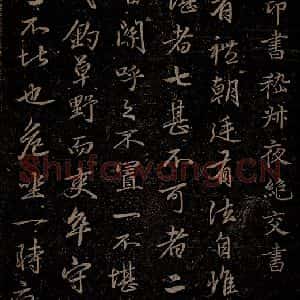 印書嵇叔夜絶交書
有禮朝廷有法自惟
堪者七甚不可者二
關呼之不置一不堪
弋釣草野而吏卒守
不堪也危坐一時
Shufawang.CN